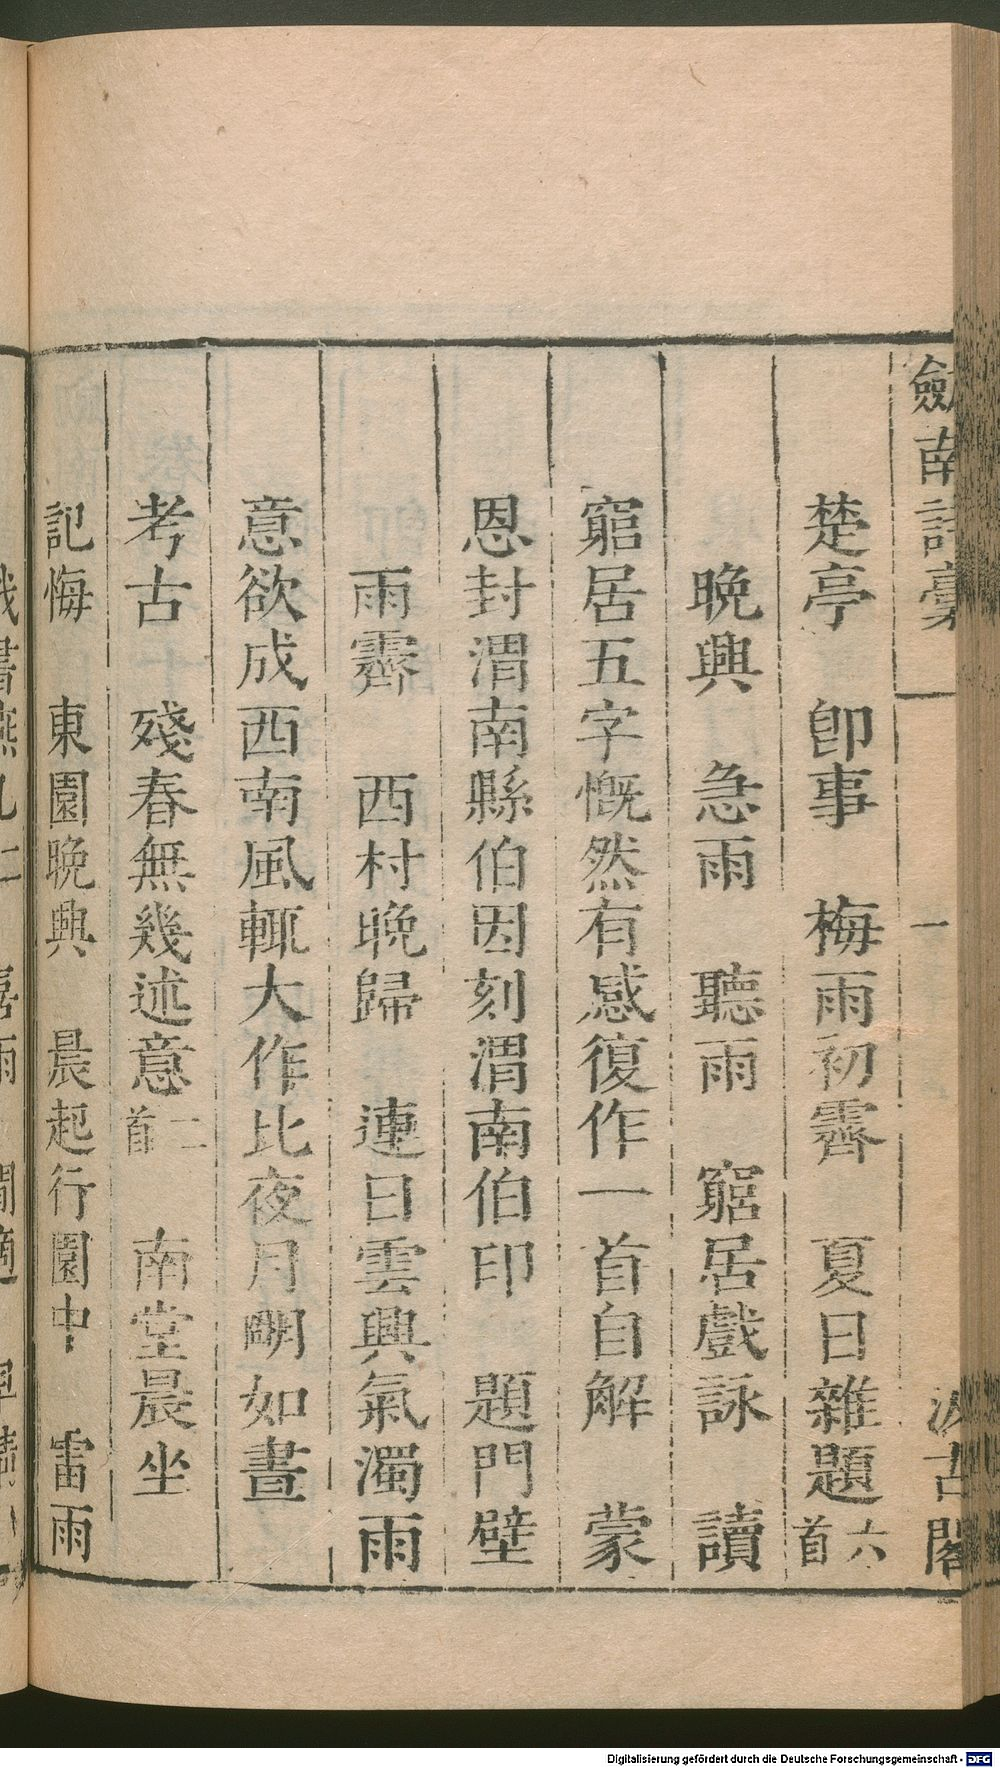 劒南詩稾 一 汲古閣
楚亭 卽事 梅雨初霽 夏日雜題六首
晩興 急雨 聽雨 窮居戲詠 讀
窮居五字慨然有感復作一首自解 蒙
恩封渭南縣伯因刻渭南伯印 題門壁
雨霽 西村晩歸 連日雲興氣濁雨
意欲成西南風輒大作比夜月明如晝
考古 殘春無幾述意二首 南堂晨坐
記悔 東園晩興 晨起行園中 雷雨
Digitalisierung gefördert durch die Deutsche Forschungsgemeinschaft - DFG